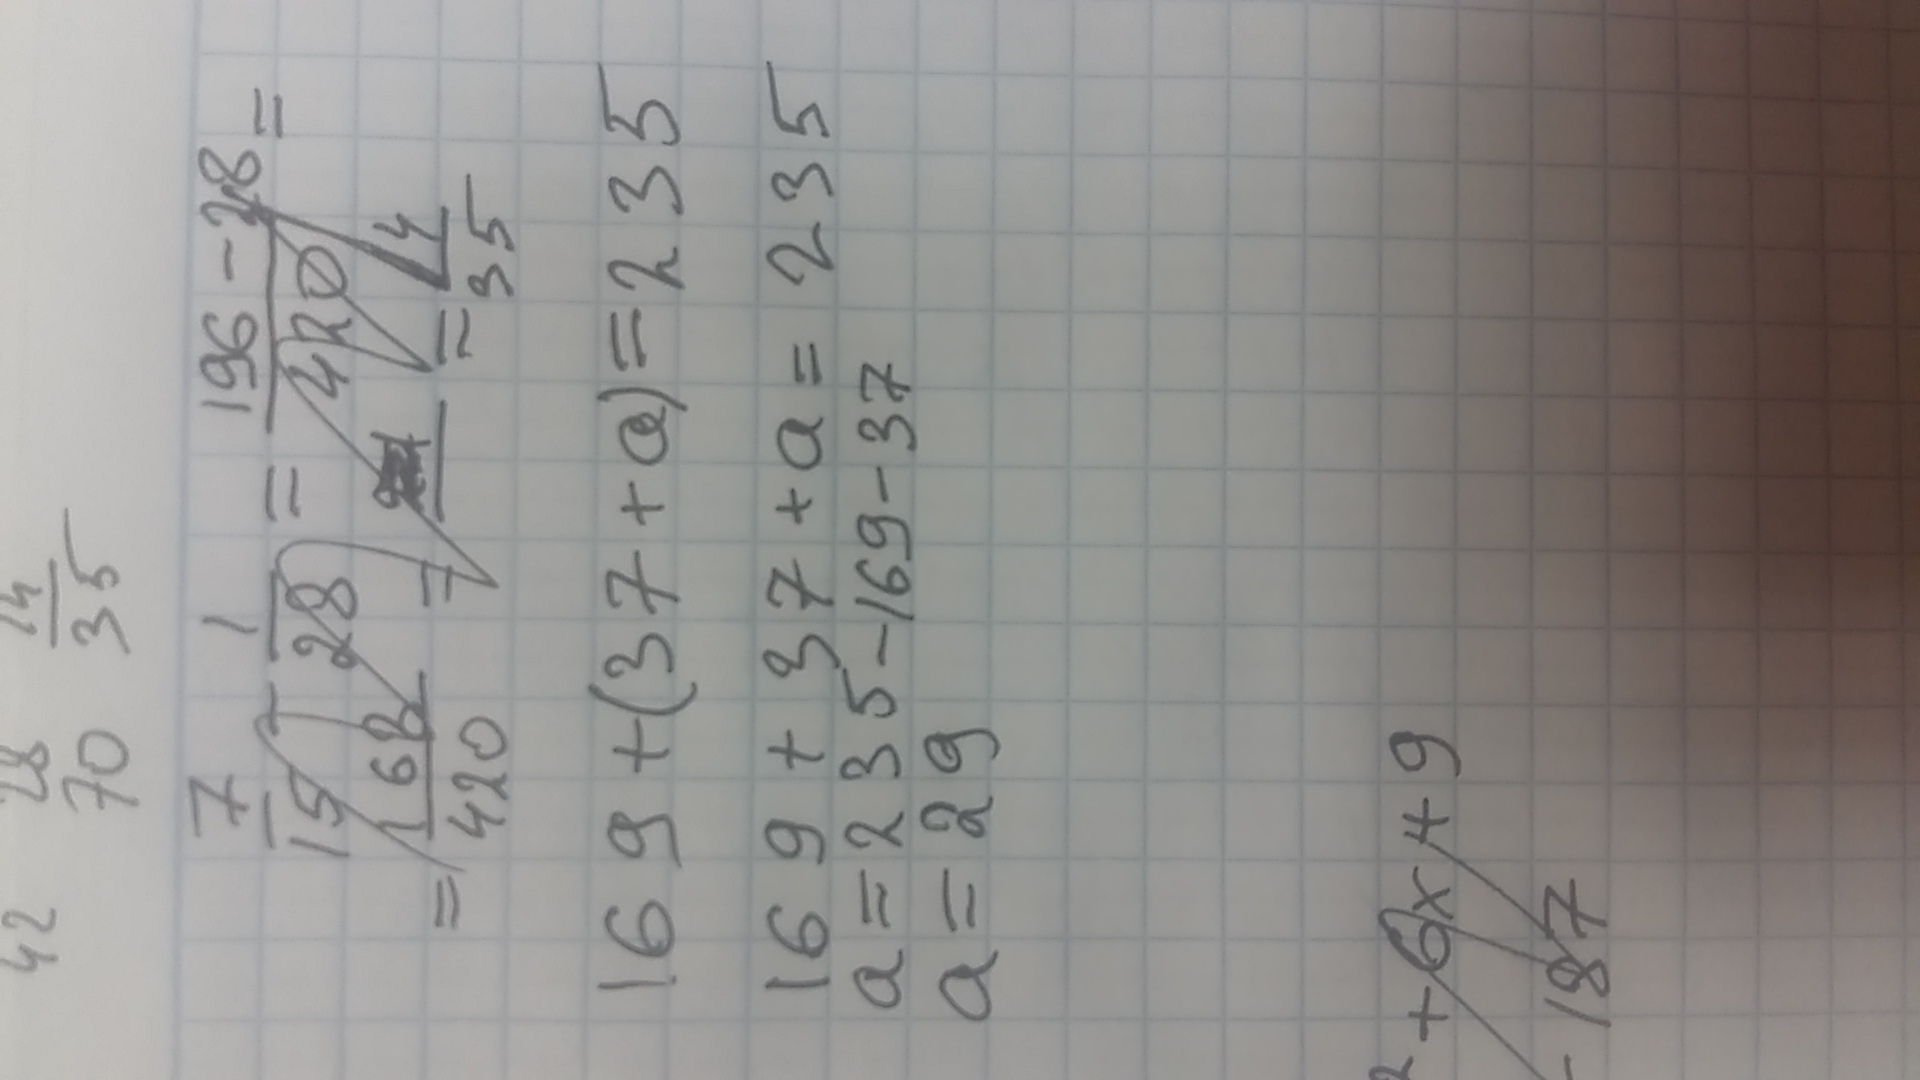 42 28 14
70 35
7/15 - 1/28 = (196 - 28)/420 =
= 168/420 = 14/35
169 + (37 + a) = 235
169 + 37 + a = 235
a = 235 - 169 - 37
a = 29
² + 6x + 9
- 187